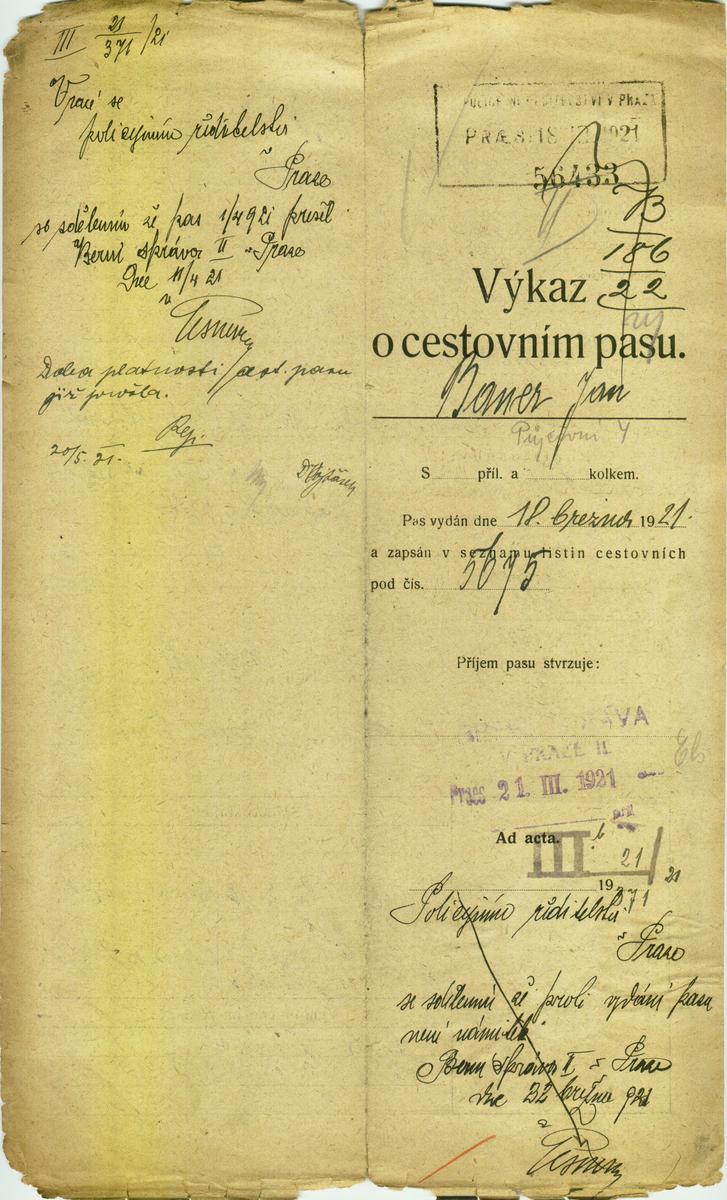 III 21/371 /21
Vrací se
policejnímu ředitelství
v Praze
se sdělením že pas 1/4 921 přešel
Berní správa II v Praze
Dne 11/4 21
Doba platnosti cest. pasu
již prošla.
Rej.
20/5. 21.
POLICEJNÍ ŘEDITELSTVÍ V PRAZE
PRÆS: 18 1921
56433
B
186
22
Výkaz
o cestovním pasu.
Bauer Jan
S příl. a kolkem.
Pas vydán dne 18. března 1921.
a zapsán v seznamu listin cestovních
pod čís. 5675
Příjem pasu stvrzuje:
BERNÍ SPRÁVA
V PRAZE II
Præs 21. III. 1921
příl.
Ad acta.
III 21/
19 371 21
Policejnímu ředitelství
v Praze
se sdělením že proti vydání pasu
není námitek.
Berní správa II v Praze
dne 22 března 921